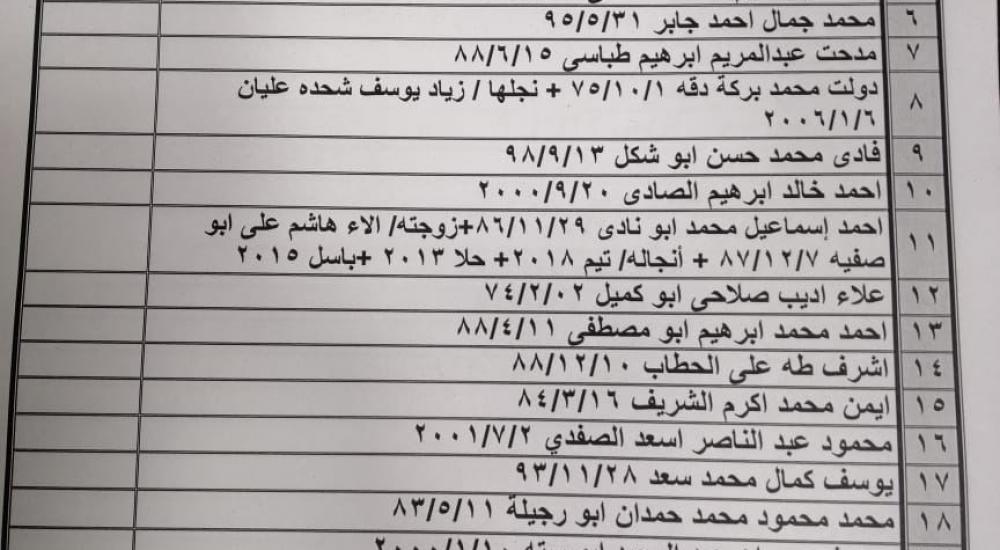 ٦ محمد جمال احمد جابر ٩٥/٥/٣١
٧ مدحت عبدالمريم ابرهيم طباسى ٨٨/٦/١٥
٨ دولت محمد بركة دقه ٧٥/١٠/١ + نجلها / زياد يوسف شحده عليان
٢٠٠٦/١/٦
٩ فادى محمد حسن ابو شكل ٩٨/٩/١٣
١٠ احمد خالد ابرهيم الصادى ٢٠٠٠/٩/٢٠
١١ احمد إسماعيل محمد ابو نادى ٨٦/١١/٢٩+زوجته/ الاء هاشم على ابو
صفيه ٨٧/١٢/٧ + أنجاله/ تيم ٢٠١٨+ حلا ٢٠١٣ +باسل ٢٠١٥
١٢ علاء اديب صلاحى ابو كميل ٧٤/٢/٠٢
١٣ احمد محمد ابرهيم ابو مصطفى ٨٨/٤/١١
١٤ اشرف طه على الحطاب ٨٨/١٢/١٠
١٥ ايمن محمد اكرم الشريف ٨٤/٣/١٦
١٦ محمود عبد الناصر اسعد الصفدي ٢٠٠١/٧/٢
١٧ يوسف كمال محمد سعد ٩٣/١١/٢٨
١٨ محمد محمود محمد حمدان ابو رجيلة ٨٣/٥/١١